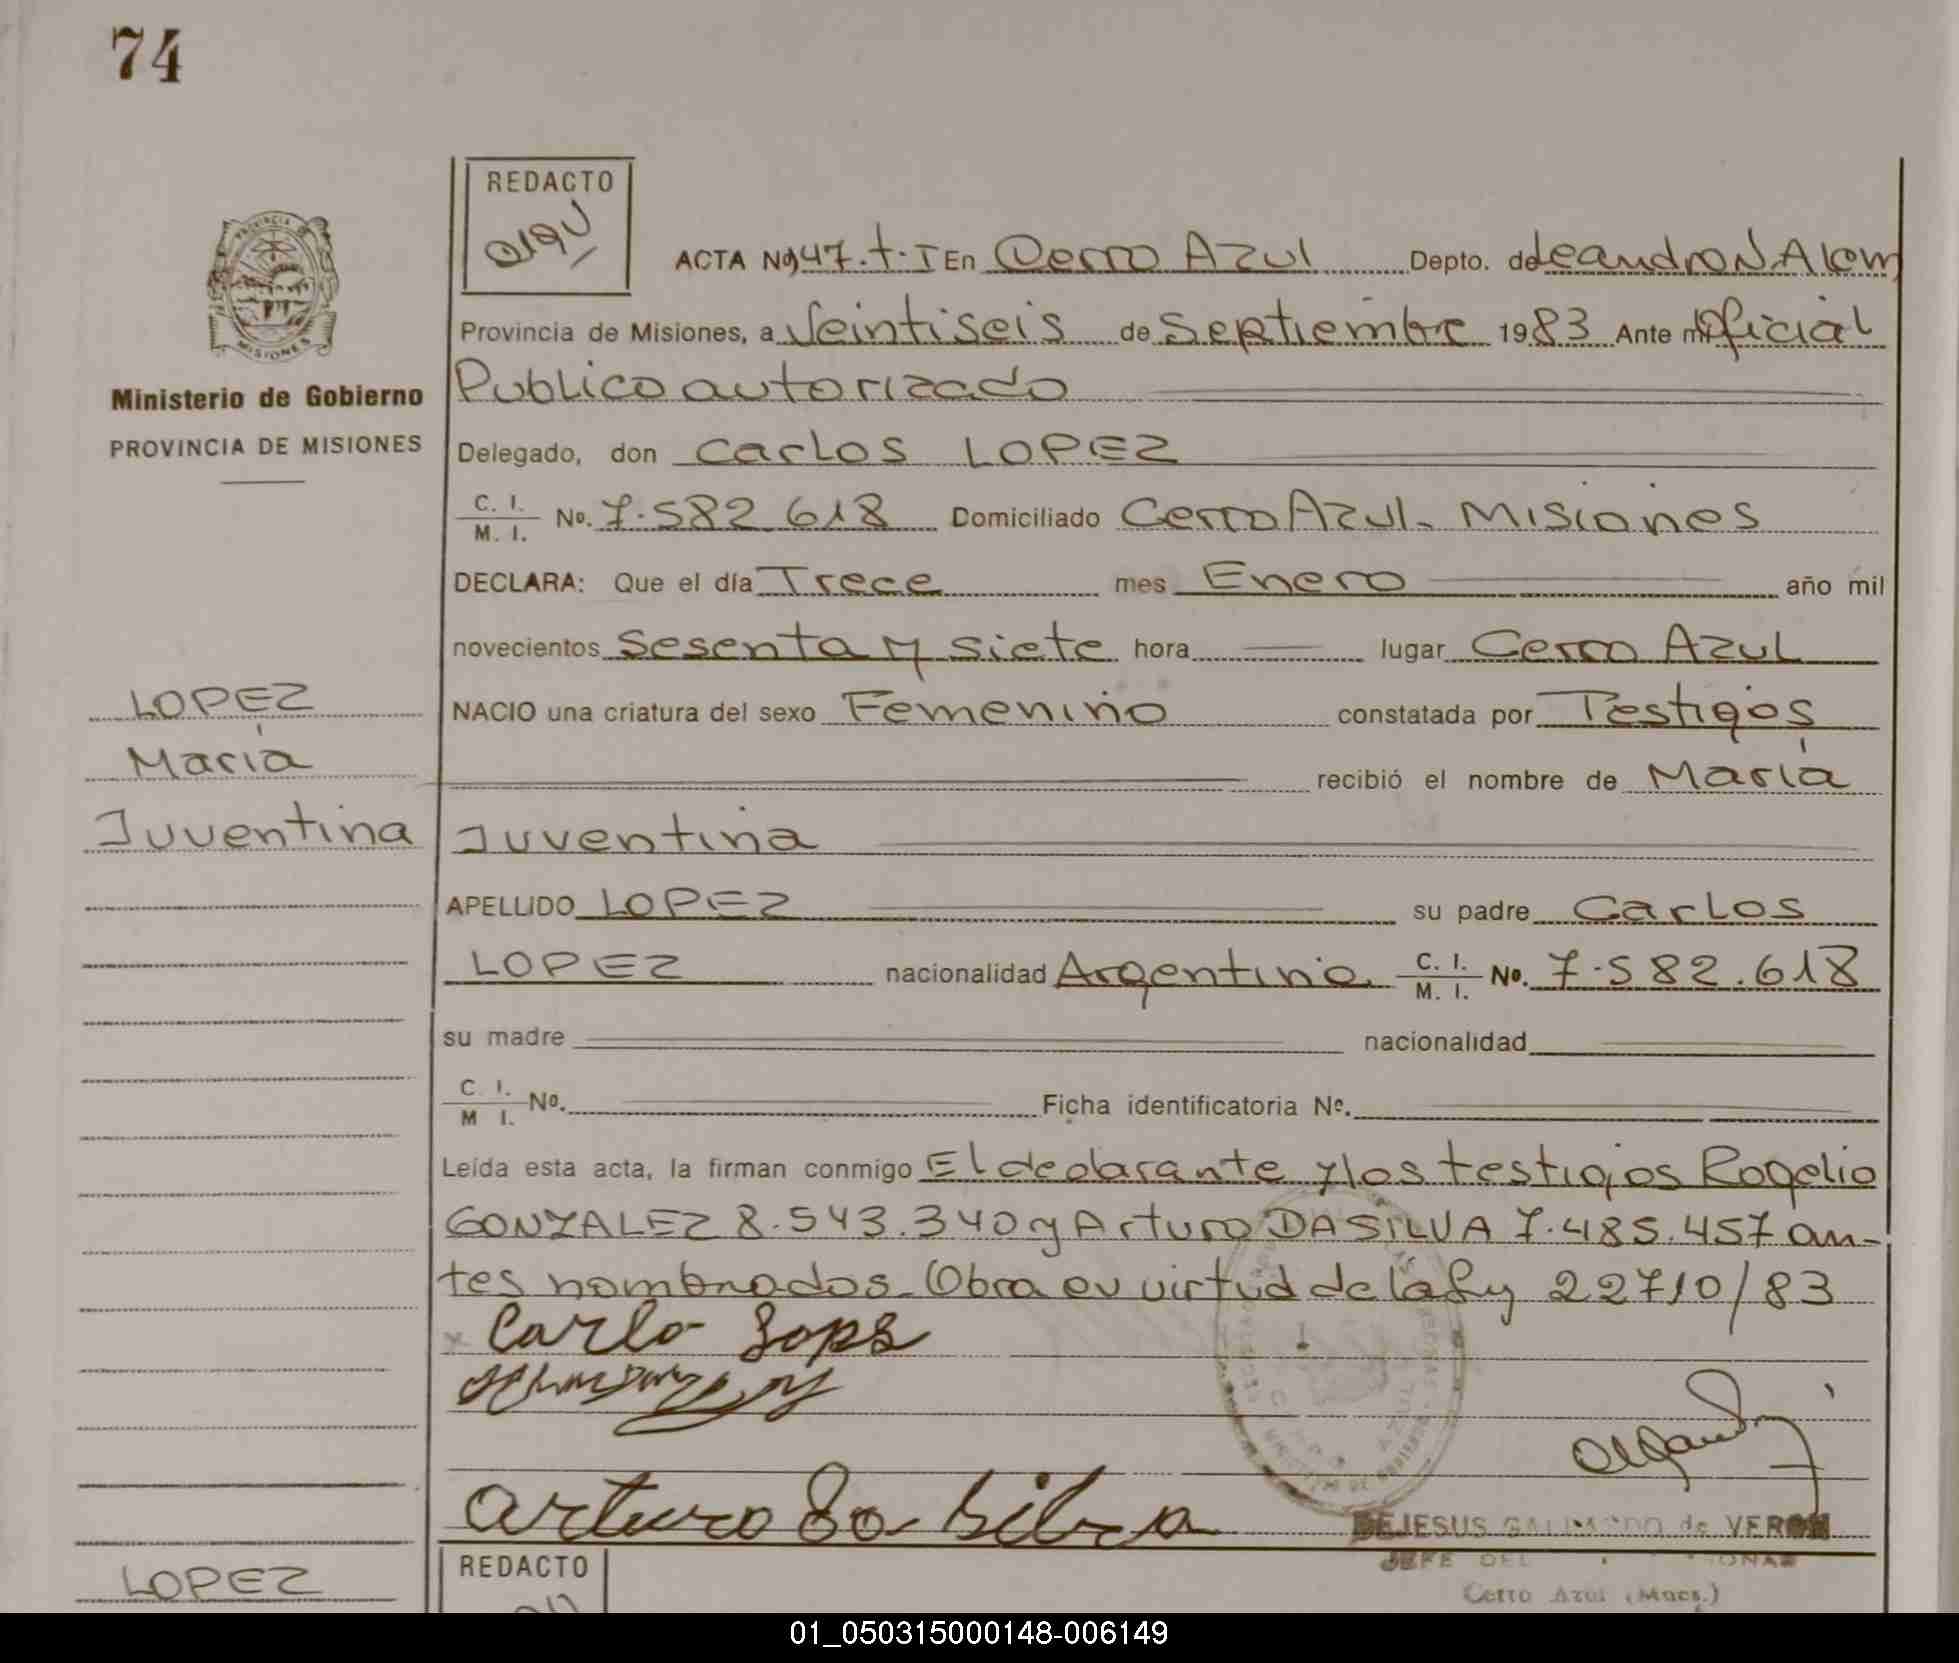 74
REDACTO
ACTA Nº 147. t. I En Cerro Azul Depto. de Leandro N. Alem
Provincia de Misiones, a Veintiseis de Septiembre 1983 Ante mí Oficial
Publico autorizado
Ministerio de Gobierno
PROVINCIA DE MISIONES
Delegado, don Carlos LOPEZ
C. I. M. I. Nº. 7.582.618 Domiciliado Cerro Azul. Misiones
DECLARA: Que el día Trece mes Enero año mil
novecientos Sesenta y siete hora lugar Cerro Azul
NACIO una criatura del sexo Femenino constatada por Testigos
recibió el nombre de María
Juventina
LOPEZ
María
Juventina
APELLIDO LOPEZ su padre Carlos
LOPEZ nacionalidad Argentina C. I. M. I. Nº. 7.582.618
su madre nacionalidad
C. I. M I. Nº. Ficha identificatoria Nº.
Leída esta acta, la firman conmigo El declarante y los testigos Rogelio
GONZALEZ 8.543.340 y Arturo DA SILVA 7.485.457 an-
tes nombrados. Obra en virtud de la Ley 22710/83
Carlo Lopz
Arturo Da Silva
DEJESUS GALLARDO de VERON
JEFE DEL
Cerro Azul (Mnes.)
REDACTO
LOPEZ
01_050315000148-006149